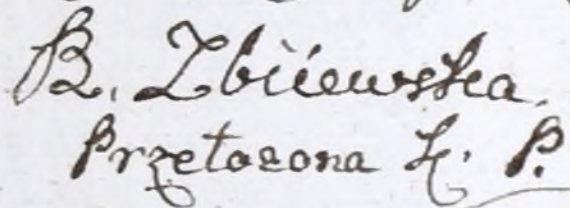 B. Zbiiewska.
Przełożona K. P.